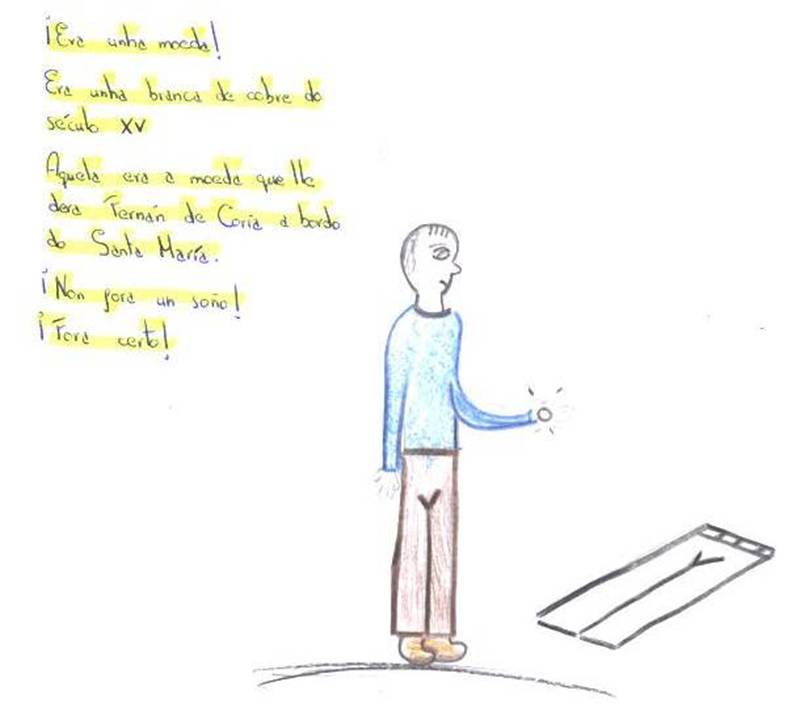 ¡Era unha moeda!
Era unha branca de cobre do
século XV
Aquela era a moeda que lle
dera Fernán de Coria a bordo
do Santa María.
¡Non fora un soño!
¡Fora certo!